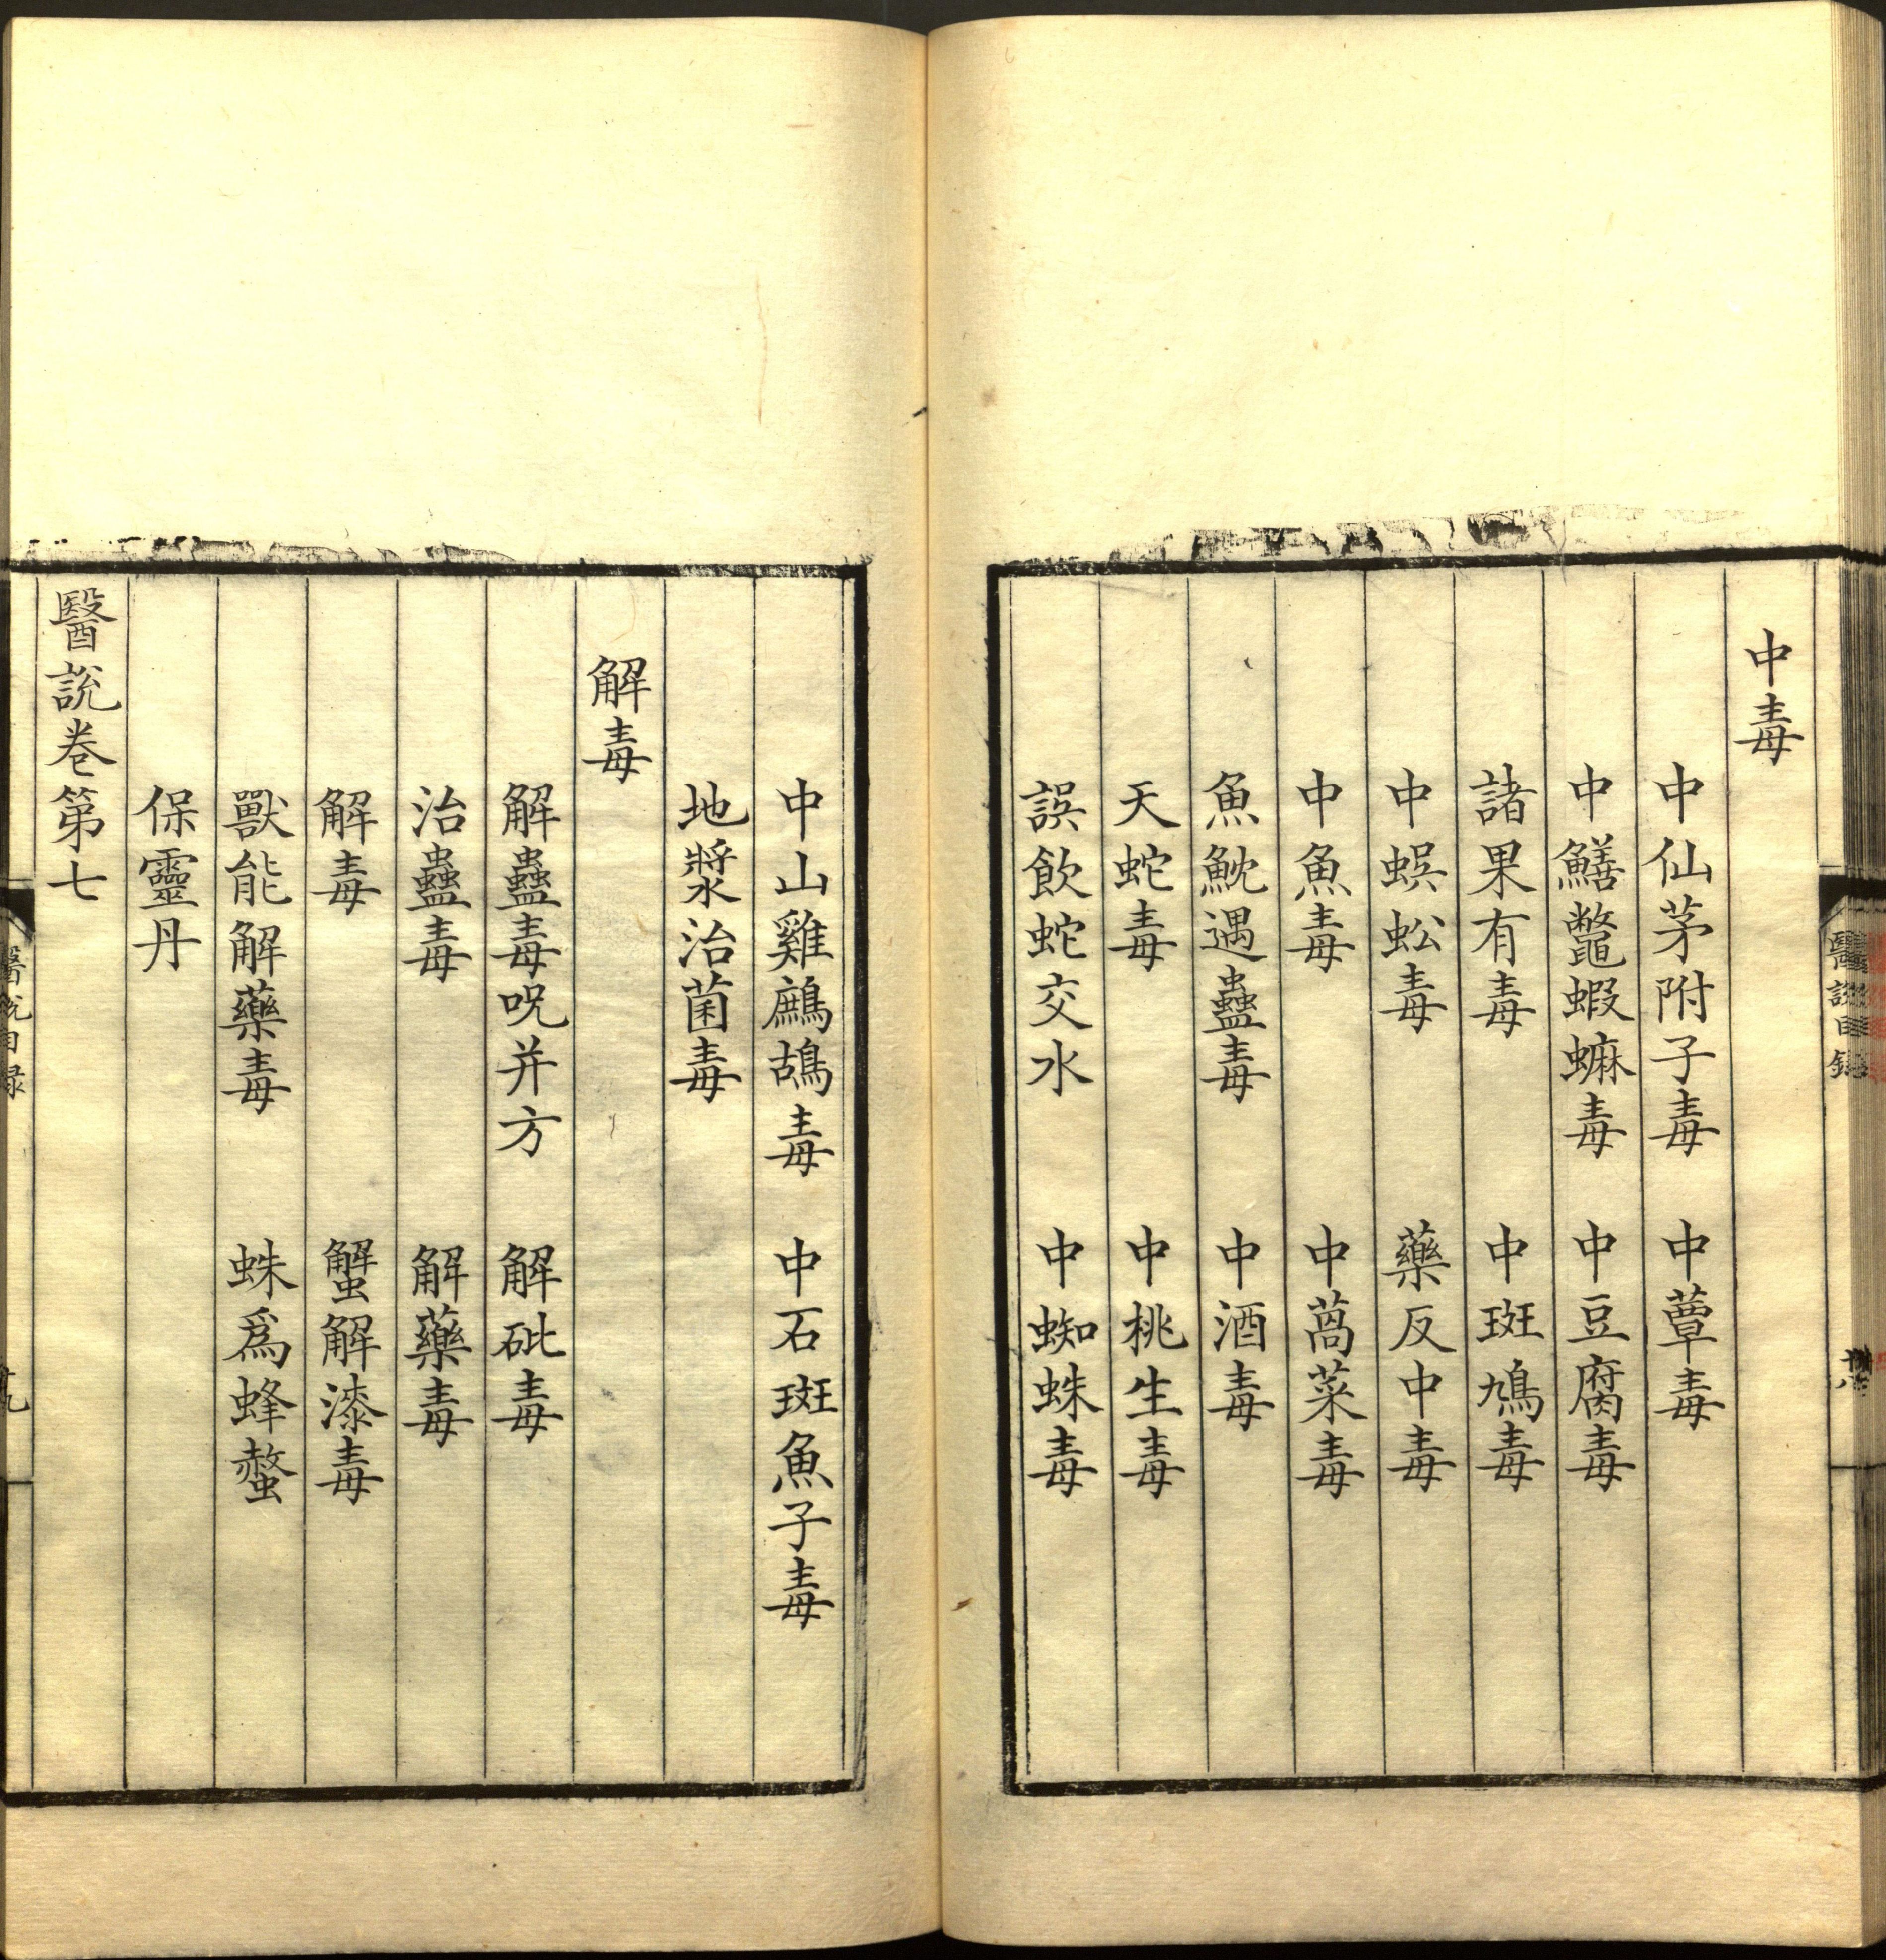 中毒
中仙茅附子毒　中蕈毒
中鱔鼈蝦蟆毒　中豆腐毒
諸果有毒　中斑鳩毒
中蜈蚣毒　藥反中毒
中魚毒　中萵菜毒
魚魫遇蠱毒　中酒毒
天蛇毒　中桃生毒
誤飲蛇交水　中蜘蛛毒
中山雞鷓鴣毒　中石斑魚子毒
地漿治菌毒
解毒
解蠱毒呪并方　解砒毒
治蠱毒　解藥毒
解毒　蟹解漆毒
獸能解藥毒　蛛爲蜂螫
保靈丹
醫說卷第七
醫說目錄